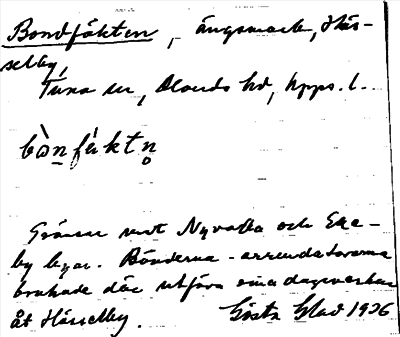 Bondfäkten, ängsmark, Häs-
selby,
Tuna sn, Olands hd, Upps. l.
bònfáktn̥
Gränsar mot Nyvalla och Eke-
by ägor. Bönderna - arrendatorerna
brukade där utföra sina dagsverken
åt Hässelby. Gösta Glad 1926